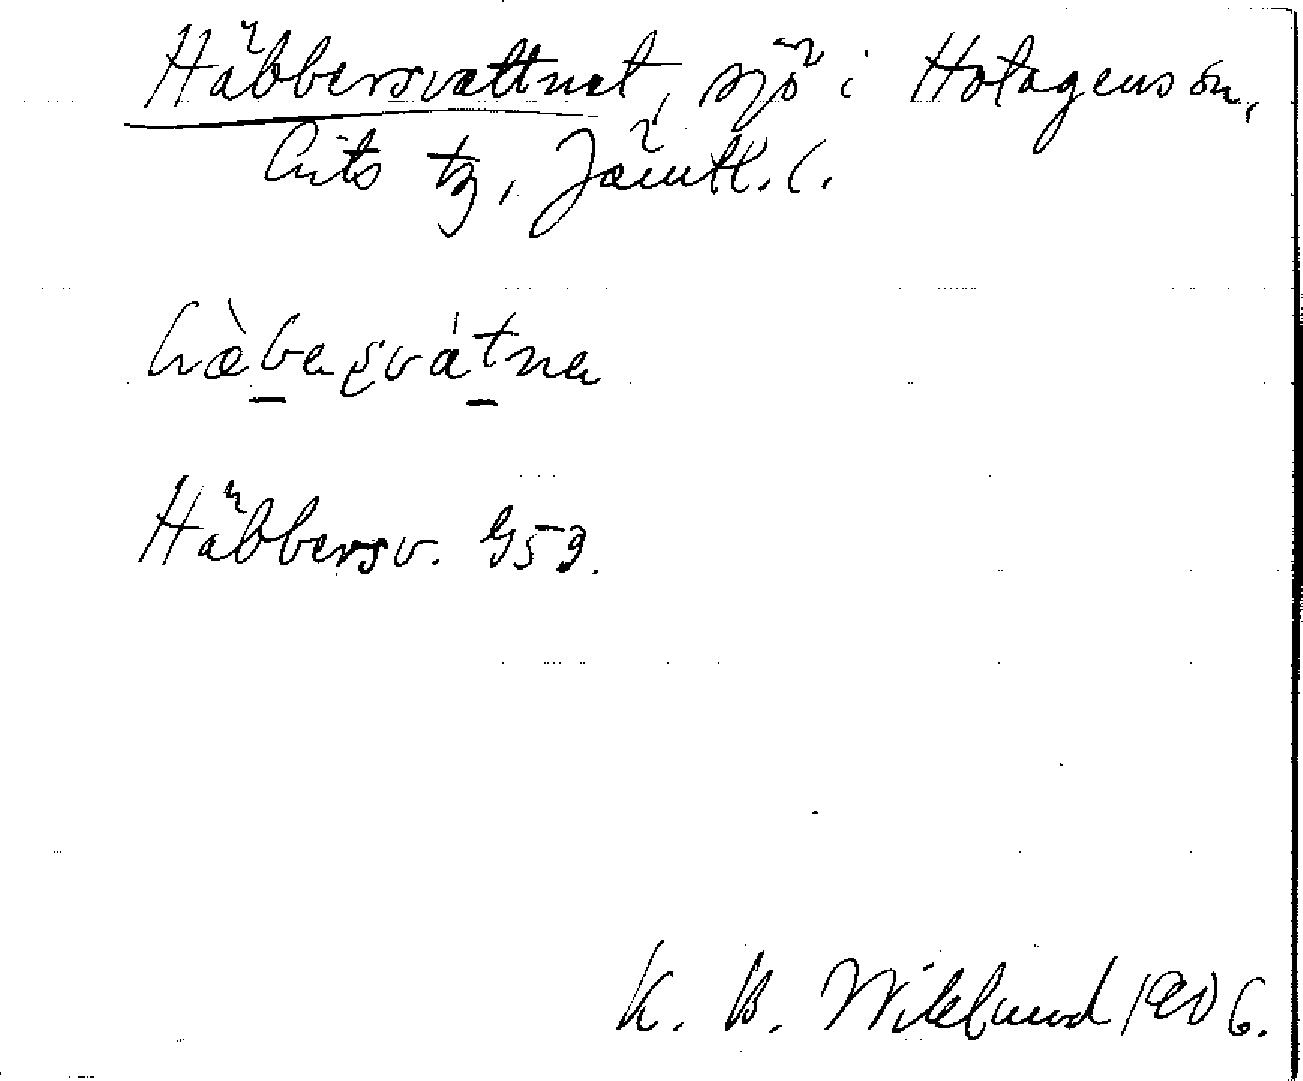 Häbbersvattnet, sjö i Hotagens sn,
Lits tg, Jämtl. l.
hæ̀baṣvátna
Häbbersv. G53.
K. B. Wiklund 1906.